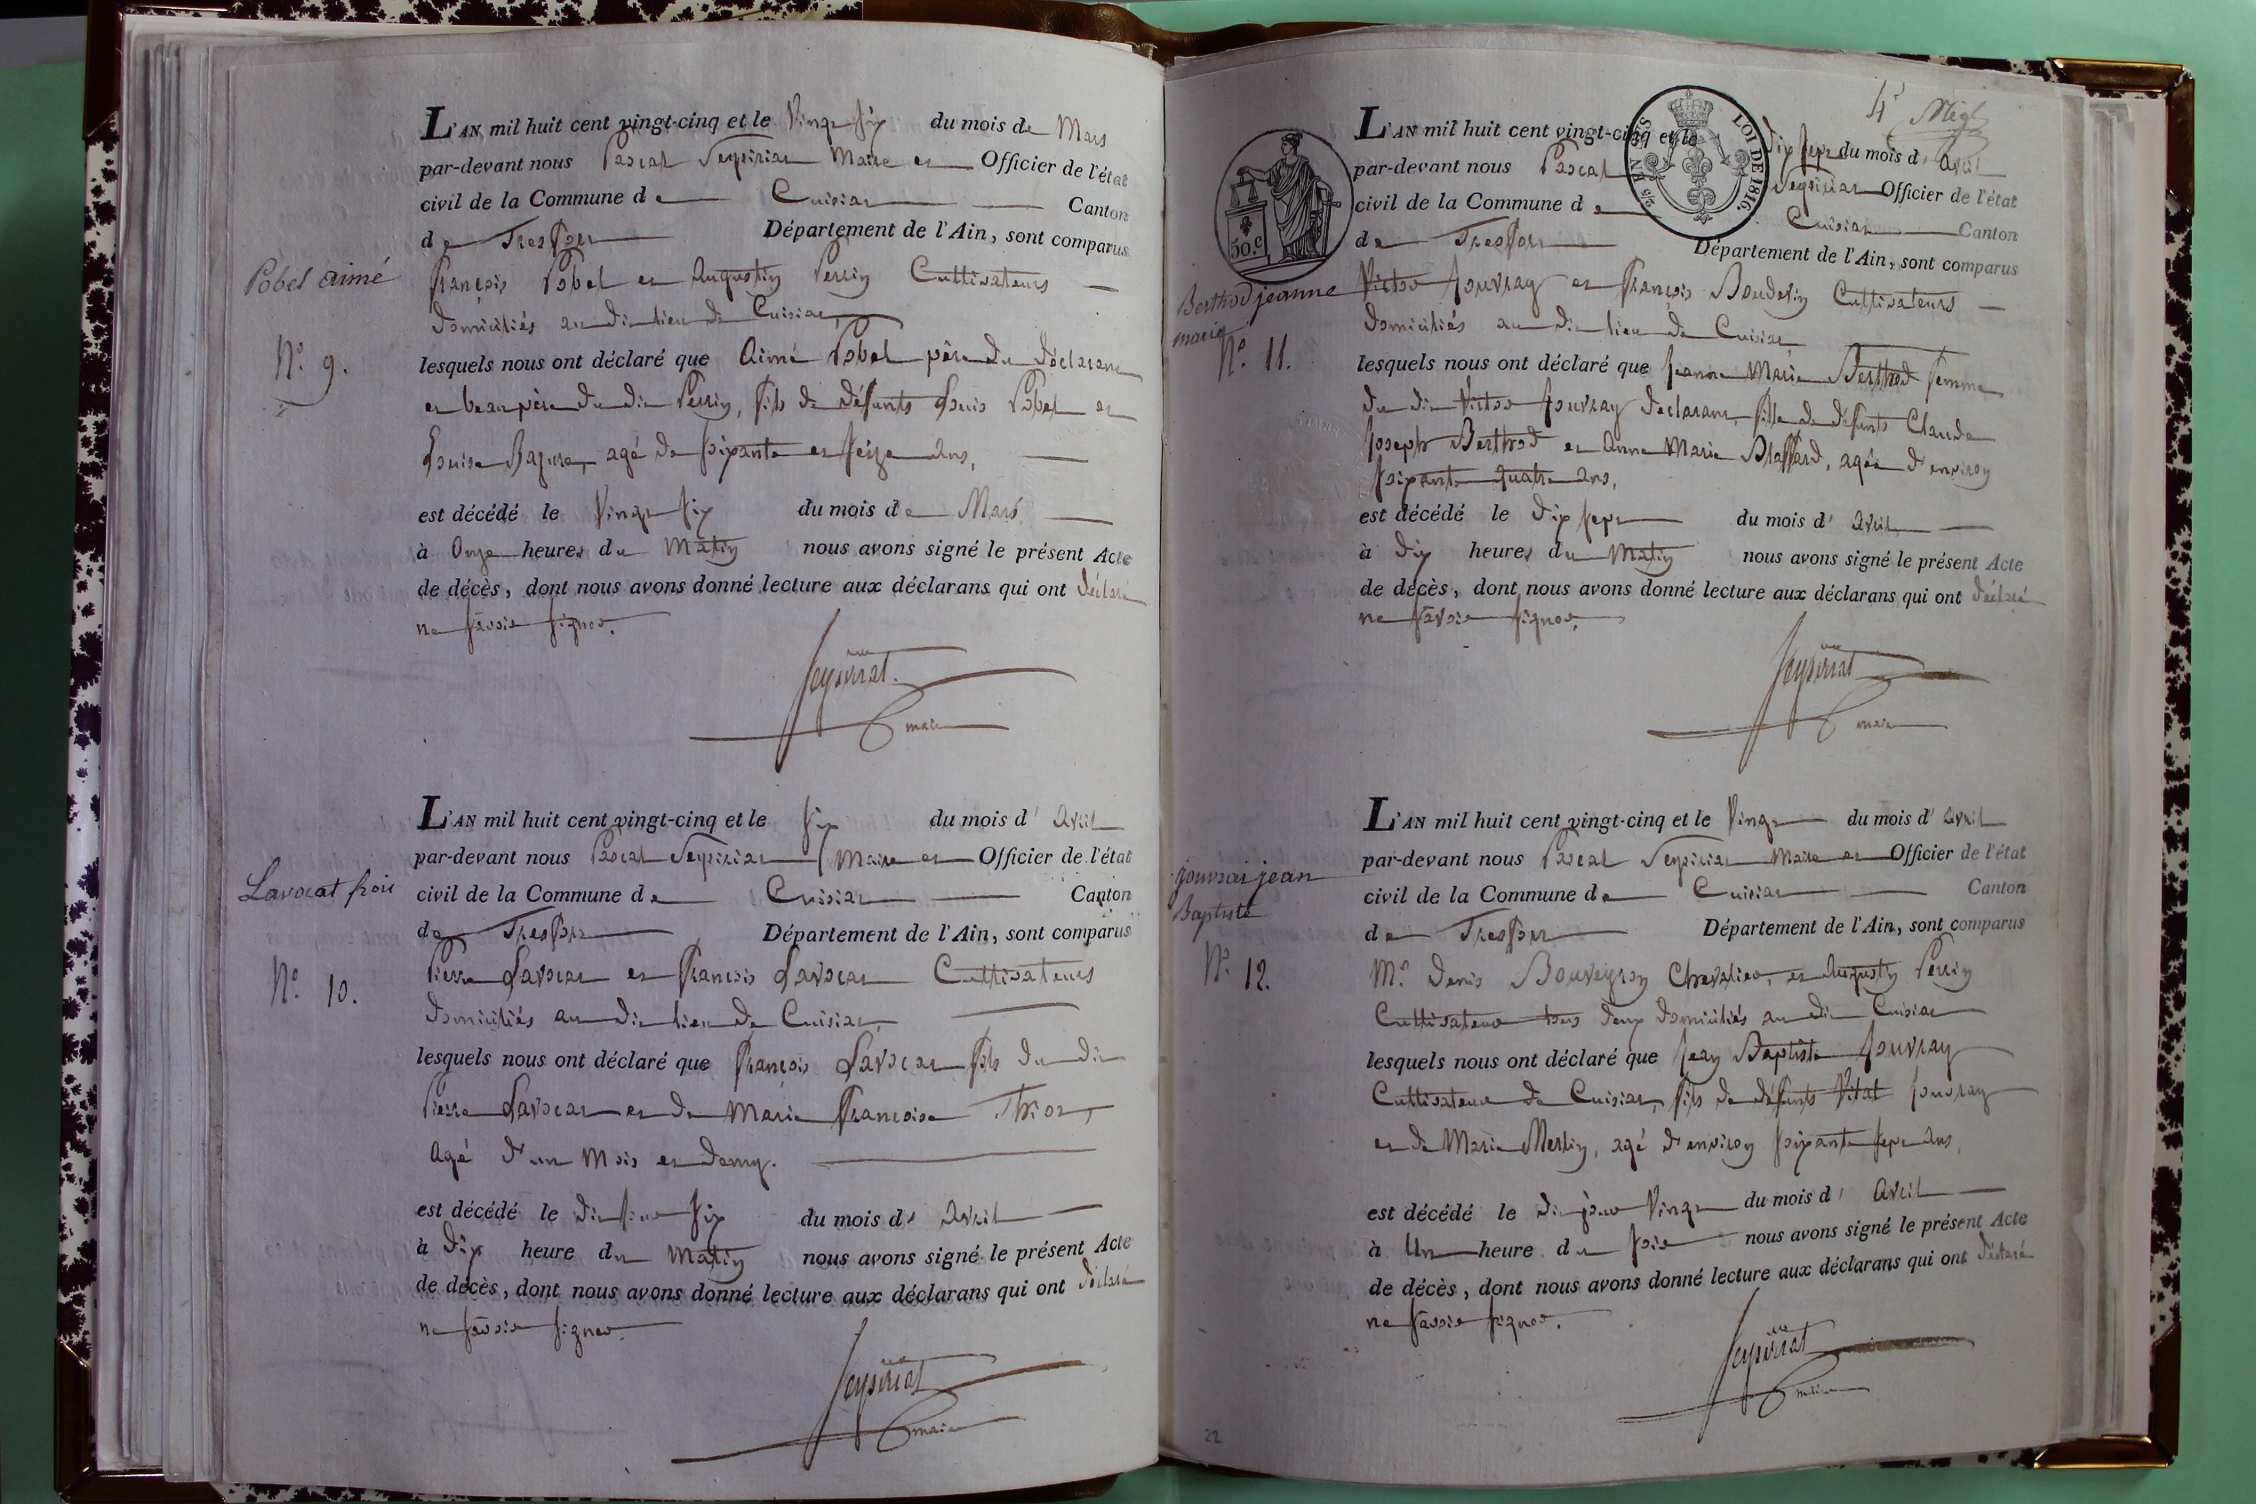 L'AN mil huit cent vingt-cinq et le Vingt six du mois de Mars
par-devant nous Pascal Seyssiriat Maire et Officier de l'état
civil de la Commune de Cuisiat Canton
de Treffort Département de l'Ain, sont comparus
Pobel aimé
François Pobel et Augustin Perrin Cultivateurs
domiciliés au dit lieu de Cuisiat,
N.o 9.
lesquels nous ont déclaré que Aimé Pobel père du déclarant
et beau père du dit Perrin, fils de défunts Louis Pobel et
Louise agé de soixante et seize ans,
est décédé le Vingt six du mois de Mars
à Onze heures du Matin nous avons signé le présent Acte
de décès, dont nous avons donné lecture aux déclarans qui ont déclaré
ne savoir signer.
maire
L'AN mil huit cent vingt-cinq et le six du mois d' avril
par-devant nous Pascal Seyssiriat Maire et Officier de l'état
Lavocat frois
civil de la Commune de Cuisiat Canton
de Treffort Département de l'Ain, sont comparus
Pierre Lavocat et François Lavocat Cultivateurs
N.o 10.
domiciliés au dit lieu de Cuisiat,
lesquels nous ont déclaré que François Lavocat fils du dit
Pierre Lavocat et de Marie Françoise
Agé d'un Mois et demy.
est décédé le six du mois d' avril
à dix heure du Matin nous avons signé le présent Acte
de décès, dont nous avons donné lecture aux déclarans qui ont déclaré
ne savoir signer.
maire
LOI DE 1816.
50.c
L'AN mil huit cent vingt-cinq et le dix sept du mois d' avril
par-devant nous Pascal Seyssiriat Officier de l'état
civil de la Commune de Cuisiat Canton
de Treffort Département de l'Ain, sont comparus
Berthod jeanne
marie
Victor Jouvray et François Boudevin Cultivateurs
domiciliés au dit lieu de Cuisiat
N.o 11.
lesquels nous ont déclaré que Jeanne Marie Berthod femme
du dit Victor Jouvray déclarant, fille de défunts Claude
Joseph Berthod et Anne Marie agée d'environ
soixante quatre ans,
est décédé le dix sept du mois d' avril
à dix heures du Matin nous avons signé le présent Acte
de décès, dont nous avons donné lecture aux déclarans qui ont déclaré
ne savoir signer.
maire
L'AN mil huit cent vingt-cinq et le Vingt du mois d' avril
par-devant nous Pascal Seyssiriat Maire et Officier de l'état
jouvrai jean
Baptiste
civil de la Commune de Cuisiat Canton
de Treffort Département de l'Ain, sont comparus
N.o 12.
M.r Denis Bouveyron Chevalier, et Augustin Perrin
Cultivateur tous deux domiciliés au dit Cuisiat
lesquels nous ont déclaré que Jean Baptiste Jouvray
Cultivateur de Cuisiat, fils de défunts Vital Jouvray
et de Marie Merlin, agé d'environ soixante sept ans,
est décédé le dit jour Vingt du mois d' avril
à Un heure du soir nous avons signé le présent Acte
de décès, dont nous avons donné lecture aux déclarans qui ont déclaré
ne savoir signer.
maire
22